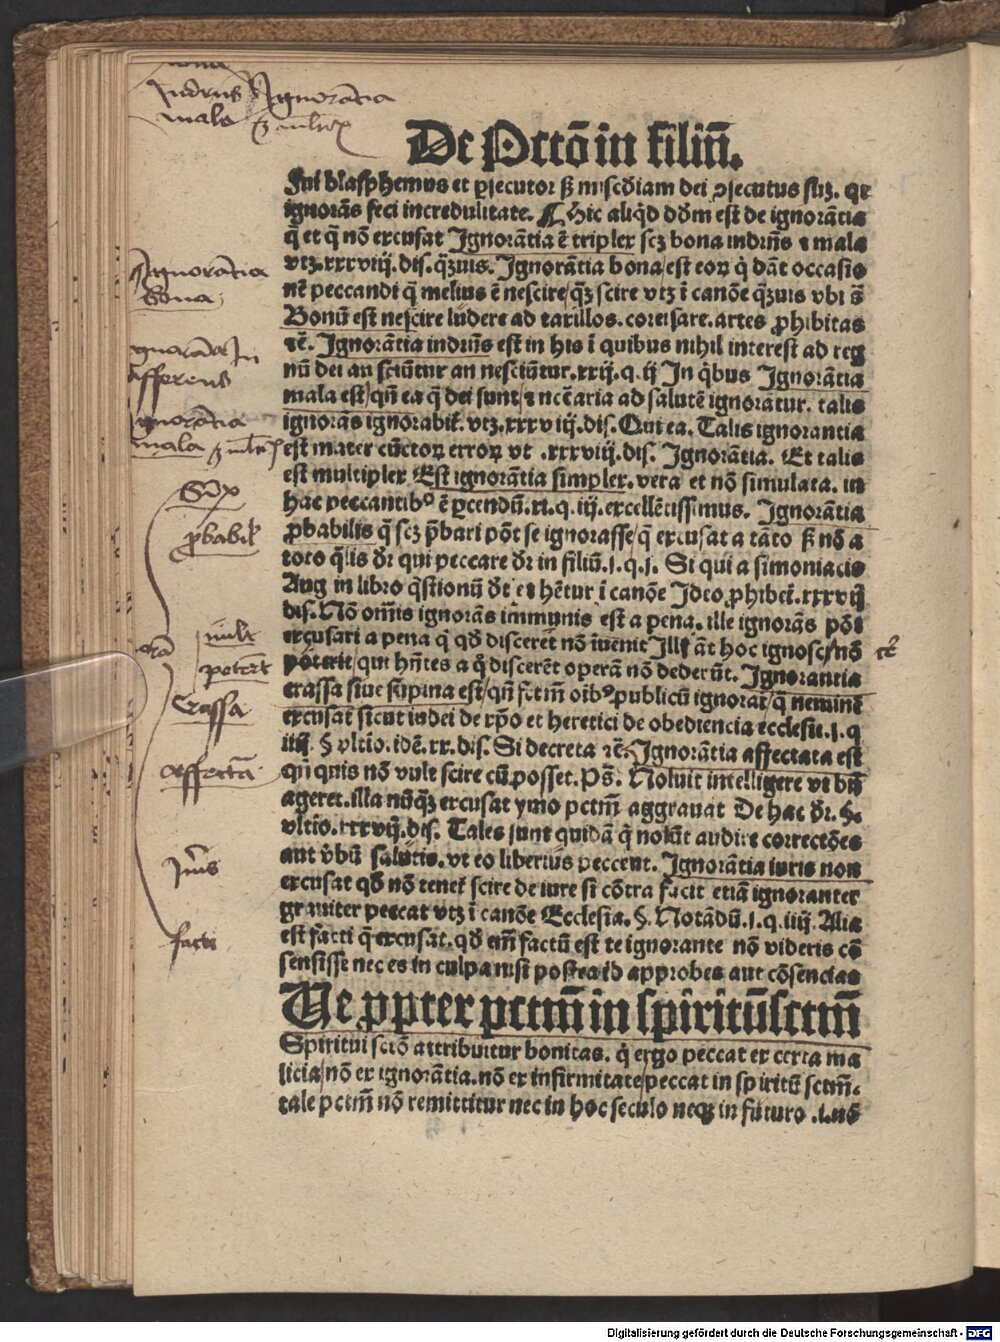 Indrūs Ignorātia
mala
De Pcctō in filiū.
Fui blasphemus et ꝑsecutor sꝫ misc̄diam dei ꝯsecutus suꝫ. qꝛ
ignorās feci incredulitate. ¶ Hic aliq̇d dd̄m est de ignorātia
q̄ et q̄ nō excusat Ignorātia ē triplex scꝫ bona indrn̄s ⁊ mala
vtꝫ.xxxviij.dis.q̄ꝫuis. Ignorātia bona est eoꝝ q̇ dāt occasio
nē peccandi q̄ melius ē nescire/qꝫ scire vtꝫ ī canōe q̄ꝫuis vbi s̄
Bonū est nescire ludere ad taxillos.conuersare.artes ꝓhibitas
⁊c̄. Ignorātia indrn̄s est in his ī quibus nihil interest ad reg
nū dei an sciūtur an nesciūtur.xxij.q.ij In q̇bus Ignorātia
mala est/qn̄ ea q̄ dei sunt/⁊ nc̄caria ad salutē ignoratur. talis
ignorās ignorabiť. vtꝫ.xxxviij.dis.Qui ea. Talis ignorantia
est mater cūctoꝝ erroꝝ vt .xxxviij.dis. Ignorātia. Et talis
est multiplex Est ignorātia simplex.vera et nō simulata. in
hac peccantibꝰ ē ꝑcendū.xi.q.iij.excellētissimus. Ignorātia
ꝓbabilis q̄ scꝫ ꝓbari pōt se ignorasse/q̄ excusat a tāto sꝫ nō a
toto q̄lis dr̄ qui peccare dr̄ in filiū.i.q.i. Si qui a simoniacis
Aug in libro q̄stionū dt̄ et hētur ī canōe Ideo ꝓhibeť.xxxvij
dis. Nō om̄is ignorās immunis est a pena. ille ignorās pōt
excusari a pena q̄ qd̄ disceret nō īuenit Illꝭ āt hoc ignosci/nō ⁊c̄
poterit/qui hn̄tes a q̇ discerēt operā nō dederūt. Ignorantia
crassa siue supina est/qn̄ fctm̄ oībꝰ publicū ignorat/q̄ neminē
excusat sicut iudei de xp̄o et heretici de obediencia ecclesie.i.q
iiij. § vltīo.idē.xx.dis. Si decreta ⁊c̄. Ignorātia affectata est
qn̄ quis nō vult scire cū posset. Ps̄. Noluit intelligere vt bn̄
ageret.illa nūq̄ꝫ excusat ymo pctm̄ aggrauat De hac dr̄. §.
vltīo.xxxvij.dis. Tales sunt quidā q̇ nolūt audire correctōes
aut v̇bū salutis.vt eo liberius peccent. Ignorātia iuris non
excusat qd̄ nō teneť scire de iure si cōtra facit etiā ignoranter
grauiter peccat vtꝫ ī canōe Ecclesia. §. Notādū.i.q.iiij. Alia
est facti q̄ excusat.qd̄ em̄ factū est te ignorante nō videris cō
sensisse nec es in culpa nisi postea id approbes aut cōsencias
De ꝓpter pctm̄ in spiritūsctm̄
Spiritui sctō attribuitur bonitas. q̇ ergo peccat ex certa ma
licia/nō ex ignorātia.nō ex infirmitate/peccat in spiritū sctm̄.
tale pctm̄ nō remittitur nec in hoc seculo neqꝫ in futuro .i.nō
Ignorātia
bona
Ignorātia In
differens
Ignorātia
mala
Simplex
ꝓbabilis
Crassa
Affectata
Iuris
facti
Digitalisierung gefördert durch die Deutsche Forschungsgemeinschaft - DFG